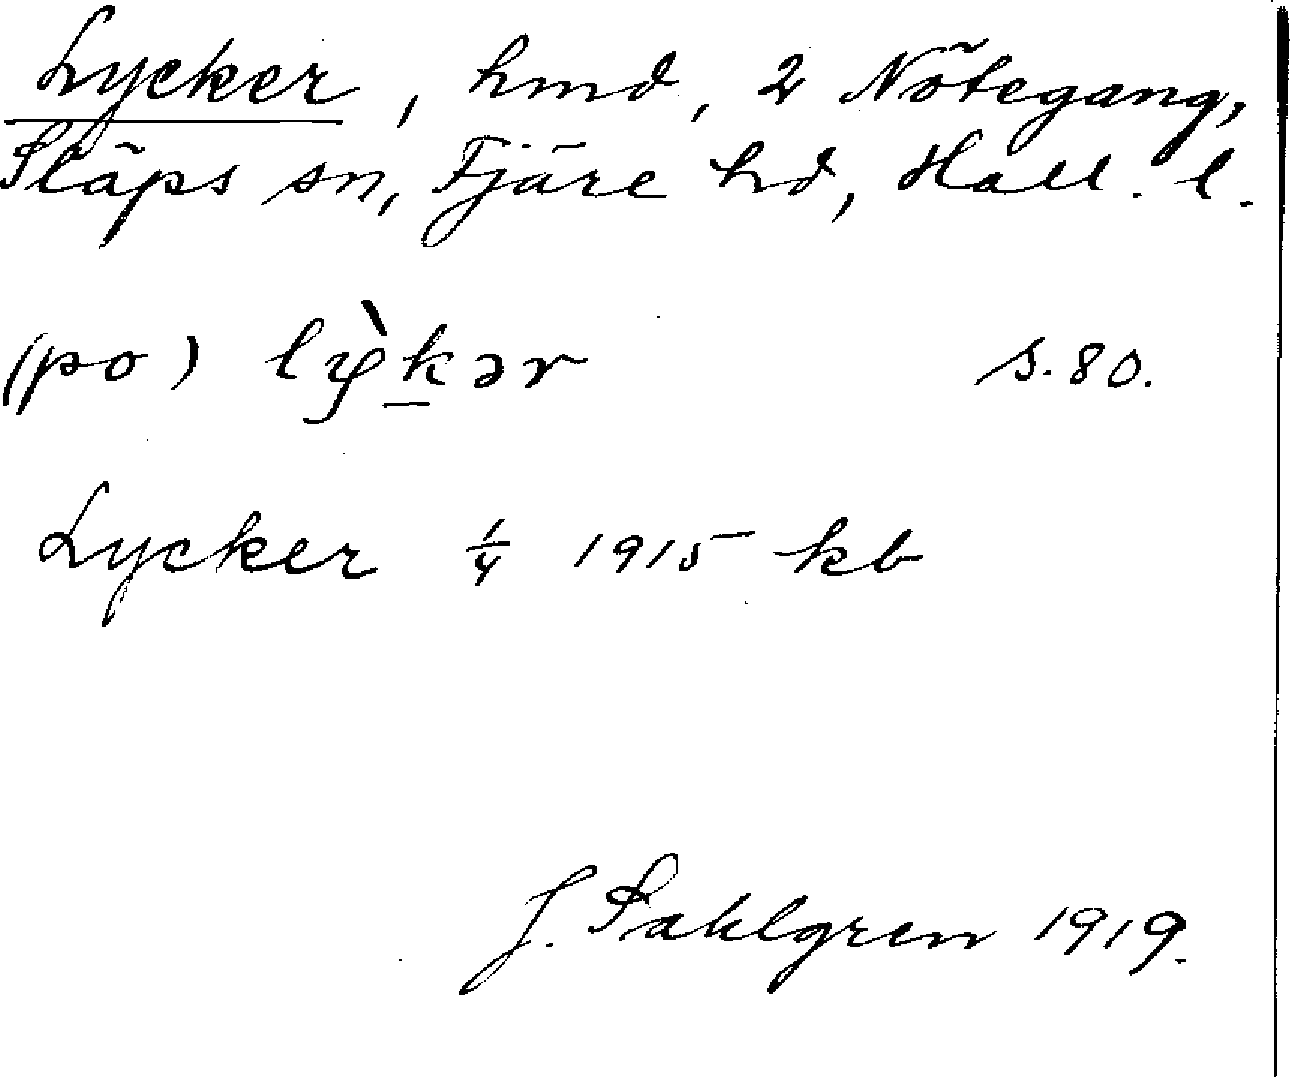 Lycker, hmd, 2 Nötegång,
Släps sn, Fjäre hd, Hall. l.
(po) lỳkər s. 80.
Lycker 1/4 1915 kb
J. Sahlgren 1919.